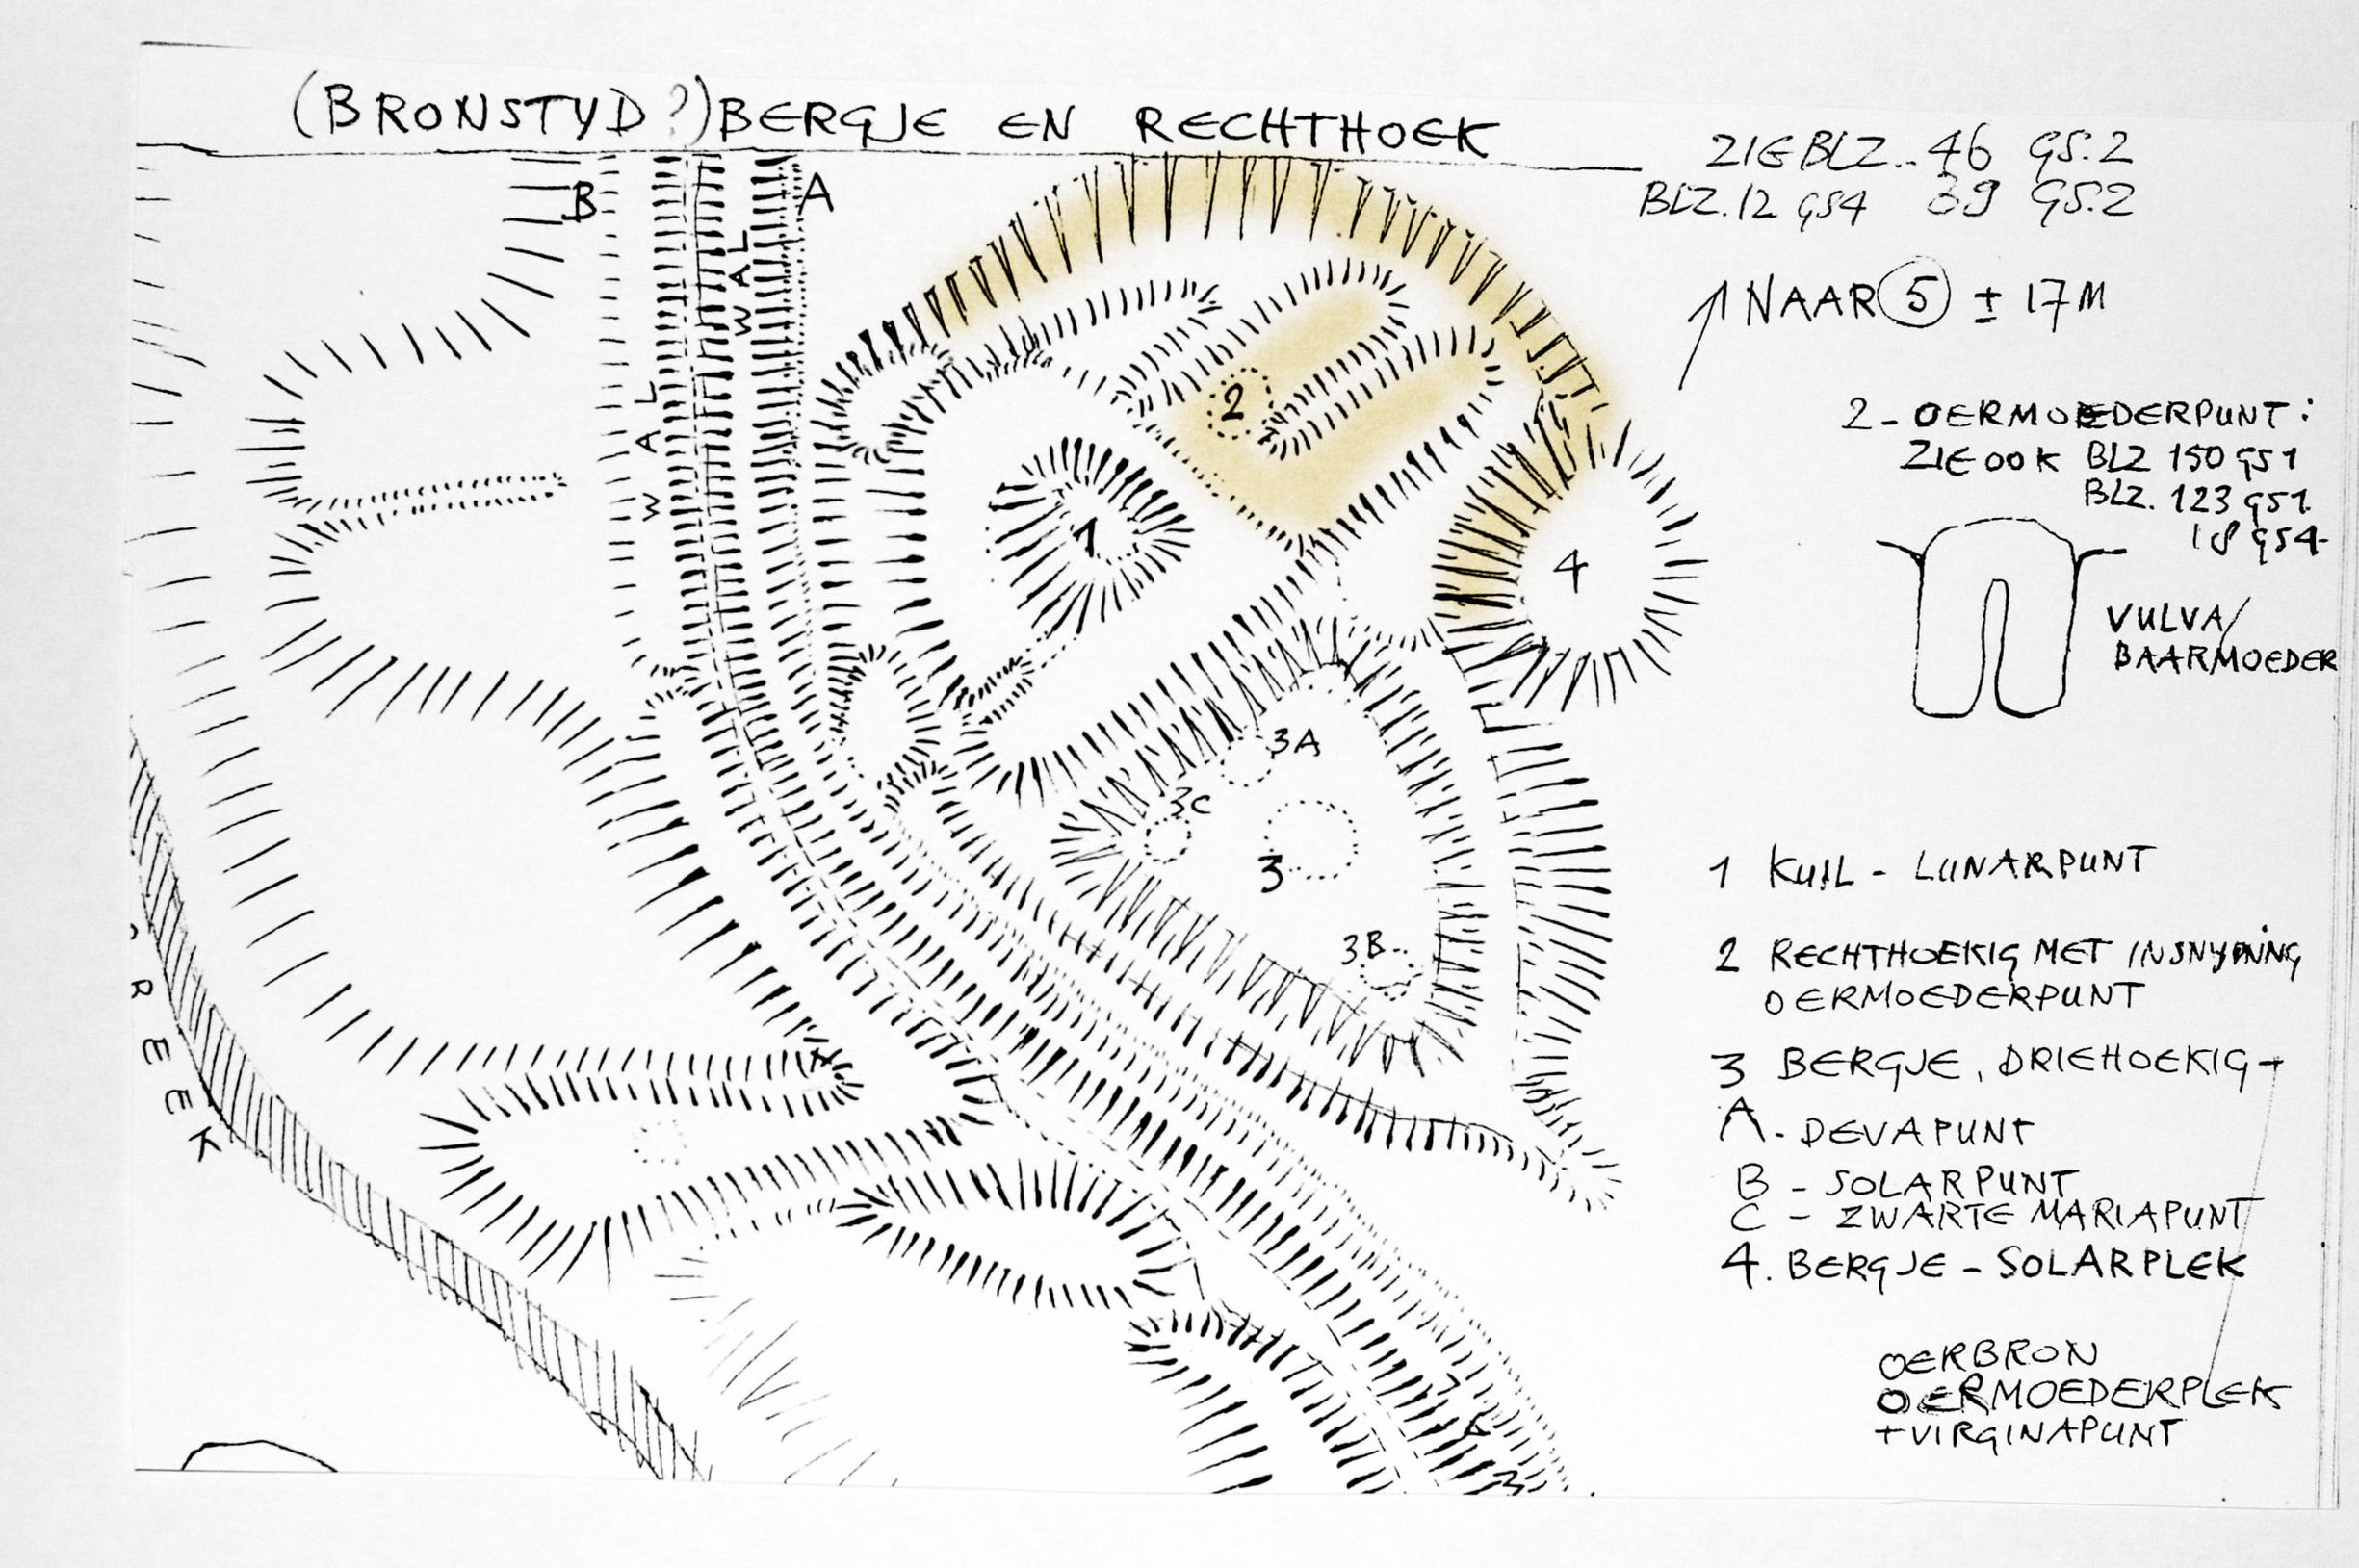 (BRONSTYD?) BERGJE EN RECHTHOEK
ZIE BLZ. 46 GS.2
BLZ. 12 GS4 39 GS.2
B
A
WAL
WAL
NAAR 5 ± 17 M
2 - OERMOEDERPUNT:
ZIE OOK BLZ 150 GS1
BLZ. 123 GS1.
18 GS4
VULVA/
BAARMOEDER
2
1
4
3A
3C
3
3B
CREEK
1 KUIL - LUNARPUNT
2 RECHTHOEKIG MET INSNYDING
OERMOEDERPUNT
3 BERGJE, DRIEHOEKIG +
A. DEVAPUNT
B - SOLARPUNT
C - ZWARTE MARIAPUNT
4. BERGJE - SOLARPLEK
OERBRON
OERMOEDERPLEK
+ VIRGINAPUNT